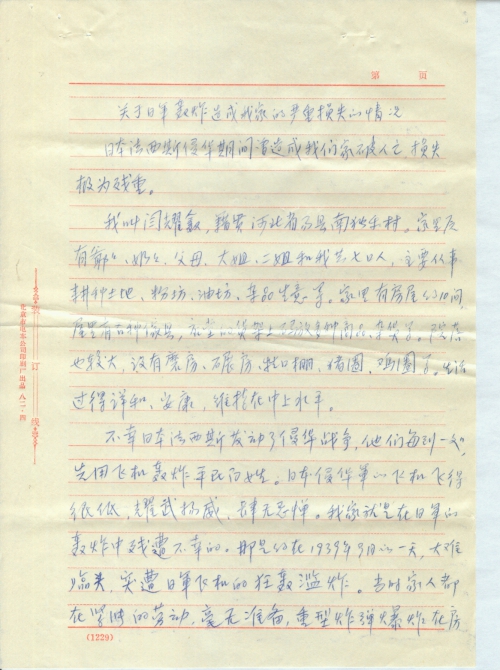 第 页
关于日军轰炸造成我家的严重损失的情况
日本法西斯侵华期间曾造成我们家破人亡 损失
极为残重。
我叫闫耀 籍贯河北省 县南 村。家里原
有爺爺、奶奶、父母、大姐、二姐和我共七口人，主要从事
耕种土地、粉坊、油坊、杂品生意等。家里有房屋约10间
屋里有各种傢具， 的货架上 杂货等。院落
也较大，设有磨房、碾房、牲口棚、猪圈、鸡圈等。生活
过得详和、安康，维持在中上水平。
不幸日本法西斯发动了侵华战争，他们每到一处，
先用飞机轰炸平民百姓。日本侵华军的飞机飞得
很低，耀武扬威，肆无忌惮。我家就是在日军的
轰炸中残遭不幸的。那是约在1939年9月的一天，大难
临头，突遭日軍飞机的狂轰滥炸。当时家人都
在紧张的劳动，毫无准备，重型炸弹爆炸在房
(1229)
装 订 线